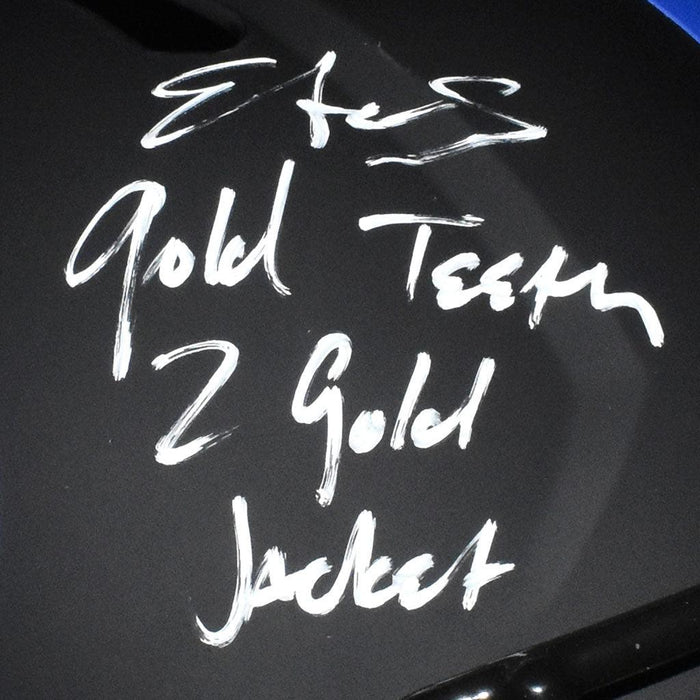 Gold Teeth
2 Gold
Jacket